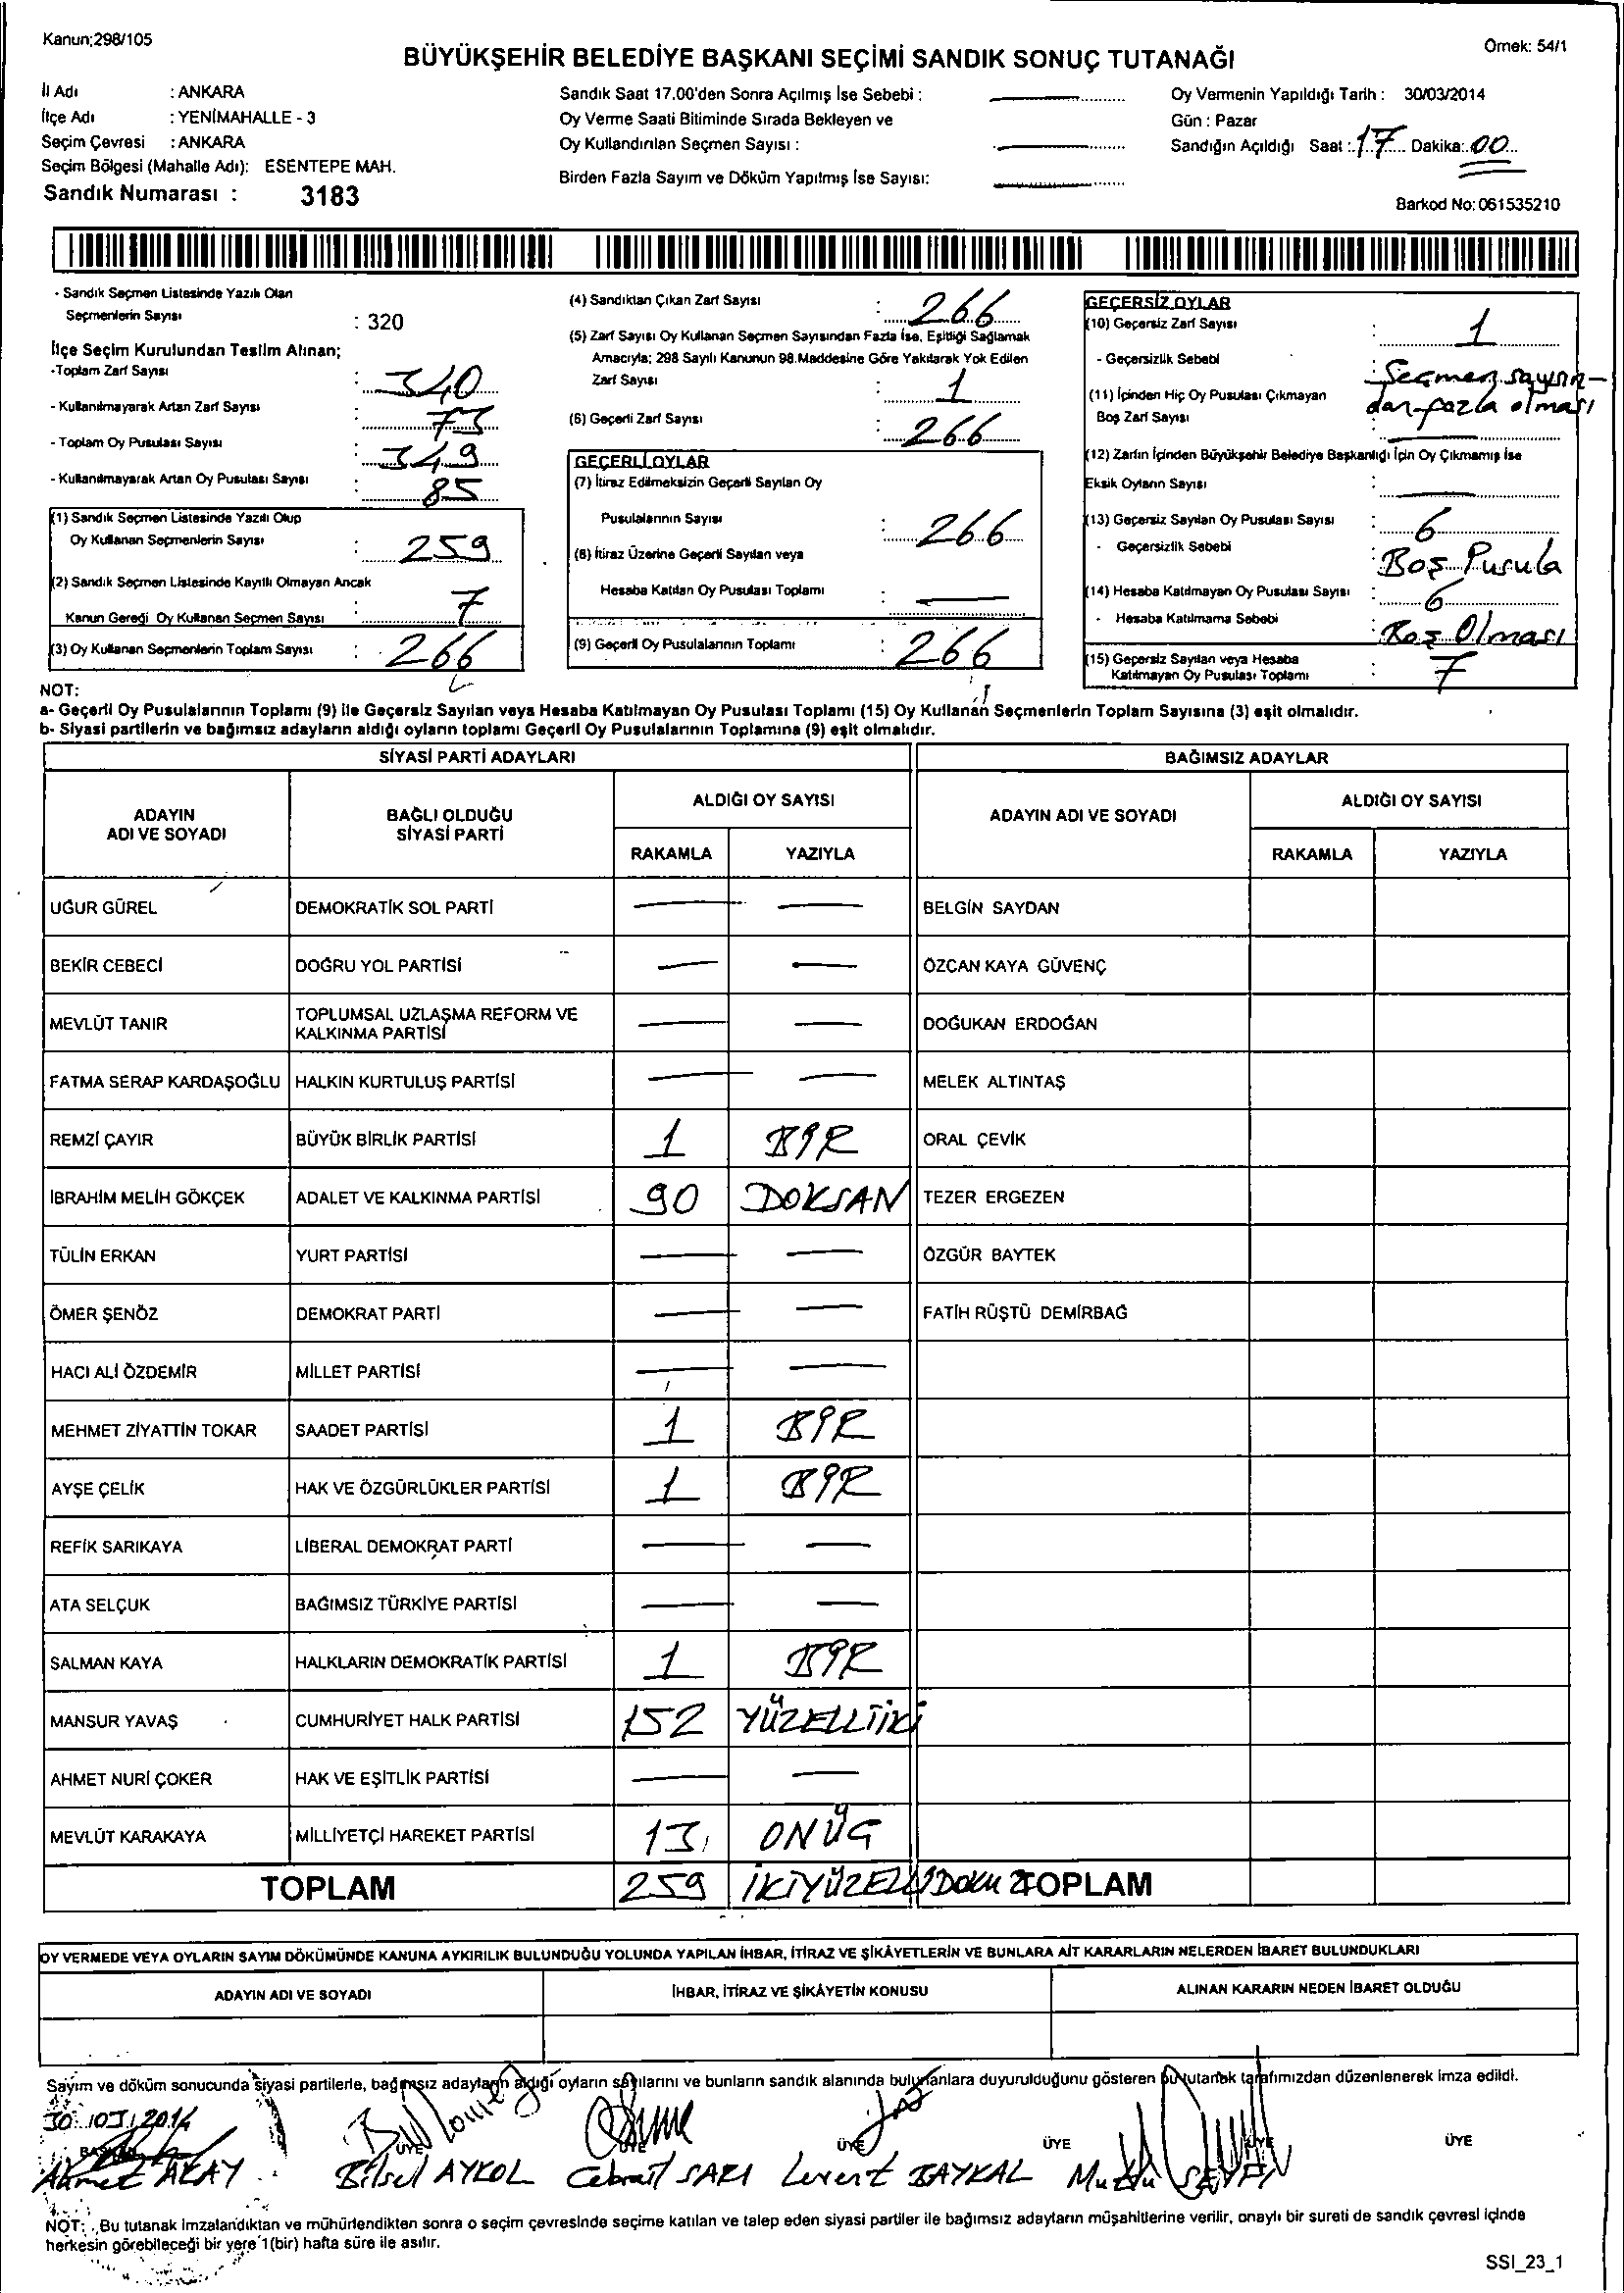 Kanun;298/105
Örnek: 54/1
BÜYÜKŞEHİR BELEDİYE BAŞKANI SEÇİMİ SANDIK SONUÇ TUTANAĞI
İl Adı : ANKARA
İlçe Adı : YENİMAHALLE - 3
Seçim Çevresi : ANKARA
Seçim Bölgesi (Mahalle Adı): ESENTEPE MAH.
Sandık Numarası : 3183
Sandık Saat 17.00'den Sonra Açılmış İse Sebebi :
Oy Verme Saati Bitiminde Sırada Bekleyen ve
Oy Kullandırılan Seçmen Sayısı :
Birden Fazla Sayım ve Döküm Yapılmış İse Sayısı:
Oy Vermenin Yapıldığı Tarih : 30/03/2014
Gün : Pazar
Sandığın Açıldığı Saat : 17 Dakika: 00
Barkod No: 061535210
- Sandık Seçmen Listesinde Yazılı Olan
Seçmenlerin Sayısı : 320
İlçe Seçim Kurulundan Teslim Alınan;
-Toplam Zarf Sayısı : 340
- Kullanılmayarak Artan Zarf Sayısı : 73
- Toplam Oy Pusulası Sayısı : 349
- Kullanılmayarak Artan Oy Pusulası Sayısı : 85
(1) Sandık Seçmen Listesinde Yazılı Olup
Oy Kullanan Seçmenlerin Sayısı : 259
(2) Sandık Seçmen Listesinde Kayıtlı Olmayan Ancak
Kanun Gereği Oy Kullanan Seçmen Sayısı : 7
(3) Oy Kullanan Seçmenlerin Toplam Sayısı : 266
(4) Sandıktan Çıkan Zarf Sayısı : 266
(5) Zarf Sayısı Oy Kullanan Seçmen Sayısından Fazla İse, Eşitliği Sağlamak
Amacıyla; 298 Sayılı Kanunun 98.Maddesine Göre Yakılarak Yok Edilen
Zarf Sayısı : 1
(6) Geçerli Zarf Sayısı : 266
GEÇERLİ OYLAR
(7) İtiraz Edilmeksizin Geçerli Sayılan Oy
Pusulalarının Sayısı : 266
(8) İtiraz Üzerine Geçerli Sayılan veya
Hesaba Katılan Oy Pusulası Toplamı :
(9) Geçerli Oy Pusulalarının Toplamı : 266
GEÇERSİZ OYLAR
(10) Geçersiz Zarf Sayısı : 1
- Geçersizlik Sebebi : Seçmen sayısın-
dan fazla olması
(11) İçinden Hiç Oy Pusulası Çıkmayan
Boş Zarf Sayısı :
(12) Zarfın İçinden Büyükşehir Belediye Başkanlığı İçin Oy Çıkmamış İse
Eksik Oyların Sayısı :
(13) Geçersiz Sayılan Oy Pusulası Sayısı : 6
- Geçersizlik Sebebi : Boş Pusula
(14) Hesaba Katılmayan Oy Pusulası Sayısı : 6
- Hesaba Katılmama Sebebi : Boş Olması
(15) Geçersiz Sayılan veya Hesaba
Katılmayan Oy Pusulası Toplamı : 7
NOT:
a- Geçerli Oy Pusulalarının Toplamı (9) ile Geçersiz Sayılan veya Hesaba Katılmayan Oy Pusulası Toplamı (15) Oy Kullanan Seçmenlerin Toplam Sayısına (3) eşit olmalıdır.
b- Siyasi partilerin ve bağımsız adayların aldığı oyların toplamı Geçerli Oy Pusulalarının Toplamına (9) eşit olmalıdır.
SİYASİ PARTİ ADAYLARI BAĞIMSIZ ADAYLAR
ADAYIN ADI VE SOYADI BAĞLI OLDUĞU SİYASİ PARTİ ALDIĞI OY SAYISI ADAYIN ADI VE SOYADI ALDIĞI OY SAYISI
RAKAMLA YAZIYLA RAKAMLA YAZIYLA
UĞUR GÜREL DEMOKRATİK SOL PARTİ — — BELGİN SAYDAN
BEKİR CEBECİ DOĞRU YOL PARTİSİ — — ÖZCAN KAYA GÜVENÇ
MEVLÜT TANIR TOPLUMSAL UZLAŞMA REFORM VE KALKINMA PARTİSİ — — DOĞUKAN ERDOĞAN
FATMA SERAP KARDAŞOĞLU HALKIN KURTULUŞ PARTİSİ — — MELEK ALTINTAŞ
REMZİ ÇAYIR BÜYÜK BİRLİK PARTİSİ 1 BİR ORAL ÇEVİK
İBRAHİM MELİH GÖKÇEK ADALET VE KALKINMA PARTİSİ 90 DOKSAN TEZER ERGEZEN
TÜLİN ERKAN YURT PARTİSİ — — ÖZGÜR BAYTEK
ÖMER ŞENÖZ DEMOKRAT PARTİ — — FATİH RÜŞTÜ DEMİRBAĞ
HACI ALİ ÖZDEMİR MİLLET PARTİSİ — —
MEHMET ZİYATTİN TOKAR SAADET PARTİSİ 1 BİR
AYŞE ÇELİK HAK VE ÖZGÜRLÜKLER PARTİSİ 1 BİR
REFİK SARIKAYA LİBERAL DEMOKRAT PARTİ — —
ATA SELÇUK BAĞIMSIZ TÜRKİYE PARTİSİ — —
SALMAN KAYA HALKLARIN DEMOKRATİK PARTİSİ 1 BİR
MANSUR YAVAŞ CUMHURİYET HALK PARTİSİ 152 YÜZELLİİKİ
AHMET NURİ ÇOKER HAK VE EŞİTLİK PARTİSİ — —
MEVLÜT KARAKAYA MİLLİYETÇİ HAREKET PARTİSİ 13 ONÜÇ
TOPLAM 259 İKİYÜZELLİDOKUZ TOPLAM
OY VERMEDE VEYA OYLARIN SAYIM DÖKÜMÜNDE KANUNA AYKIRILIK BULUNDUĞU YOLUNDA YAPILAN İHBAR, İTİRAZ VE ŞİKÂYETLERİN VE BUNLARA AİT KARARLARIN NELERDEN İBARET BULUNDUKLARI
ADAYIN ADI VE SOYADI İHBAR, İTİRAZ VE ŞİKÂYETİN KONUSU ALINAN KARARIN NEDEN İBARET OLDUĞU
Sayım ve döküm sonucunda siyasi partilerle, bağımsız adayların aldığı oyların sayılarını ve bunların sandık alanında bulunanlara duyurulduğunu gösteren bu tutanak tarafımızdan düzenlenerek imza edildi.
30/03/2014
BAŞKAN ÜYE ÜYE ÜYE ÜYE ÜYE ÜYE
Ahmet AKAY Bilsel AYKOL Cebrail SARI Levent BAYKAL Mutlu
NOT: Bu tutanak imzalandıktan ve mühürlendikten sonra o seçim çevresinde seçime katılan ve talep eden siyasi partiler ile bağımsız adayların müşahitlerine verilir, onaylı bir sureti de sandık çevresi içinde
herkesin görebileceği bir yere 1(bir) hafta süre ile asılır.
SSI_23_1